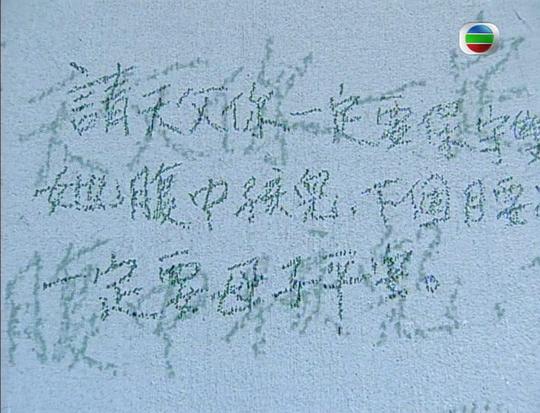 請天父你一定要保守雙
腹中孩兒,下個月要
一定要母子平安。